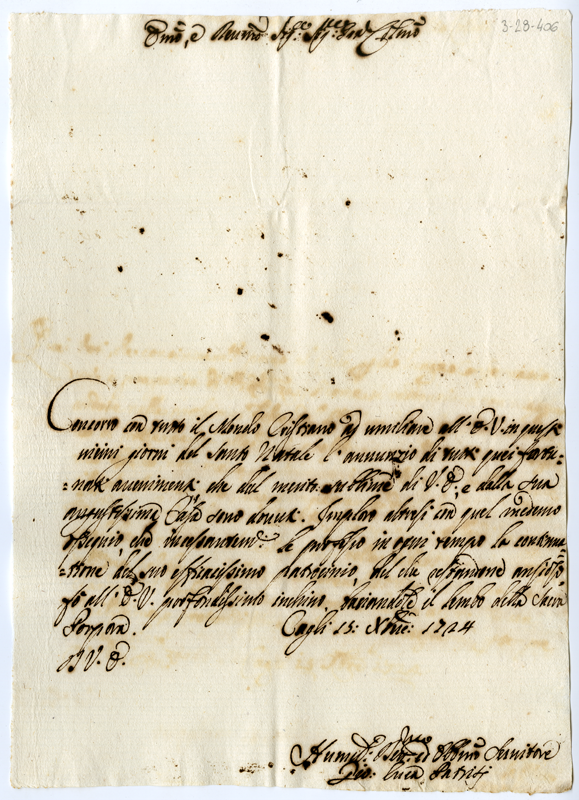 3-23-406
Em͂o, e Reum͂o Sig.r Sig.r Pron Col͂mo
Concorro con tutto il Mondo Cristiano ad umiliare all' E. V. in questi
vicini giorni del Santo Natale l' annunzio di tutti quei fortu-
=nati avenimenti che dal merito di V. E., e della sua
augustissima Casa sono dovuti. Imploro altresi con quel medemo
ossequio, che incessantem.te le professo in ogni tempo la continua-
=tione del suo efficacissimo patrocinio, del che ansioso,
fò all' E. V. profondissimo inchino, baciandole il lembo della Sacra
Porpora. Cagli 15: Xbre: 1724
D V. E.
Humil.o Deuo ed Obbmo Seruitore
Gio: Luca Patritij